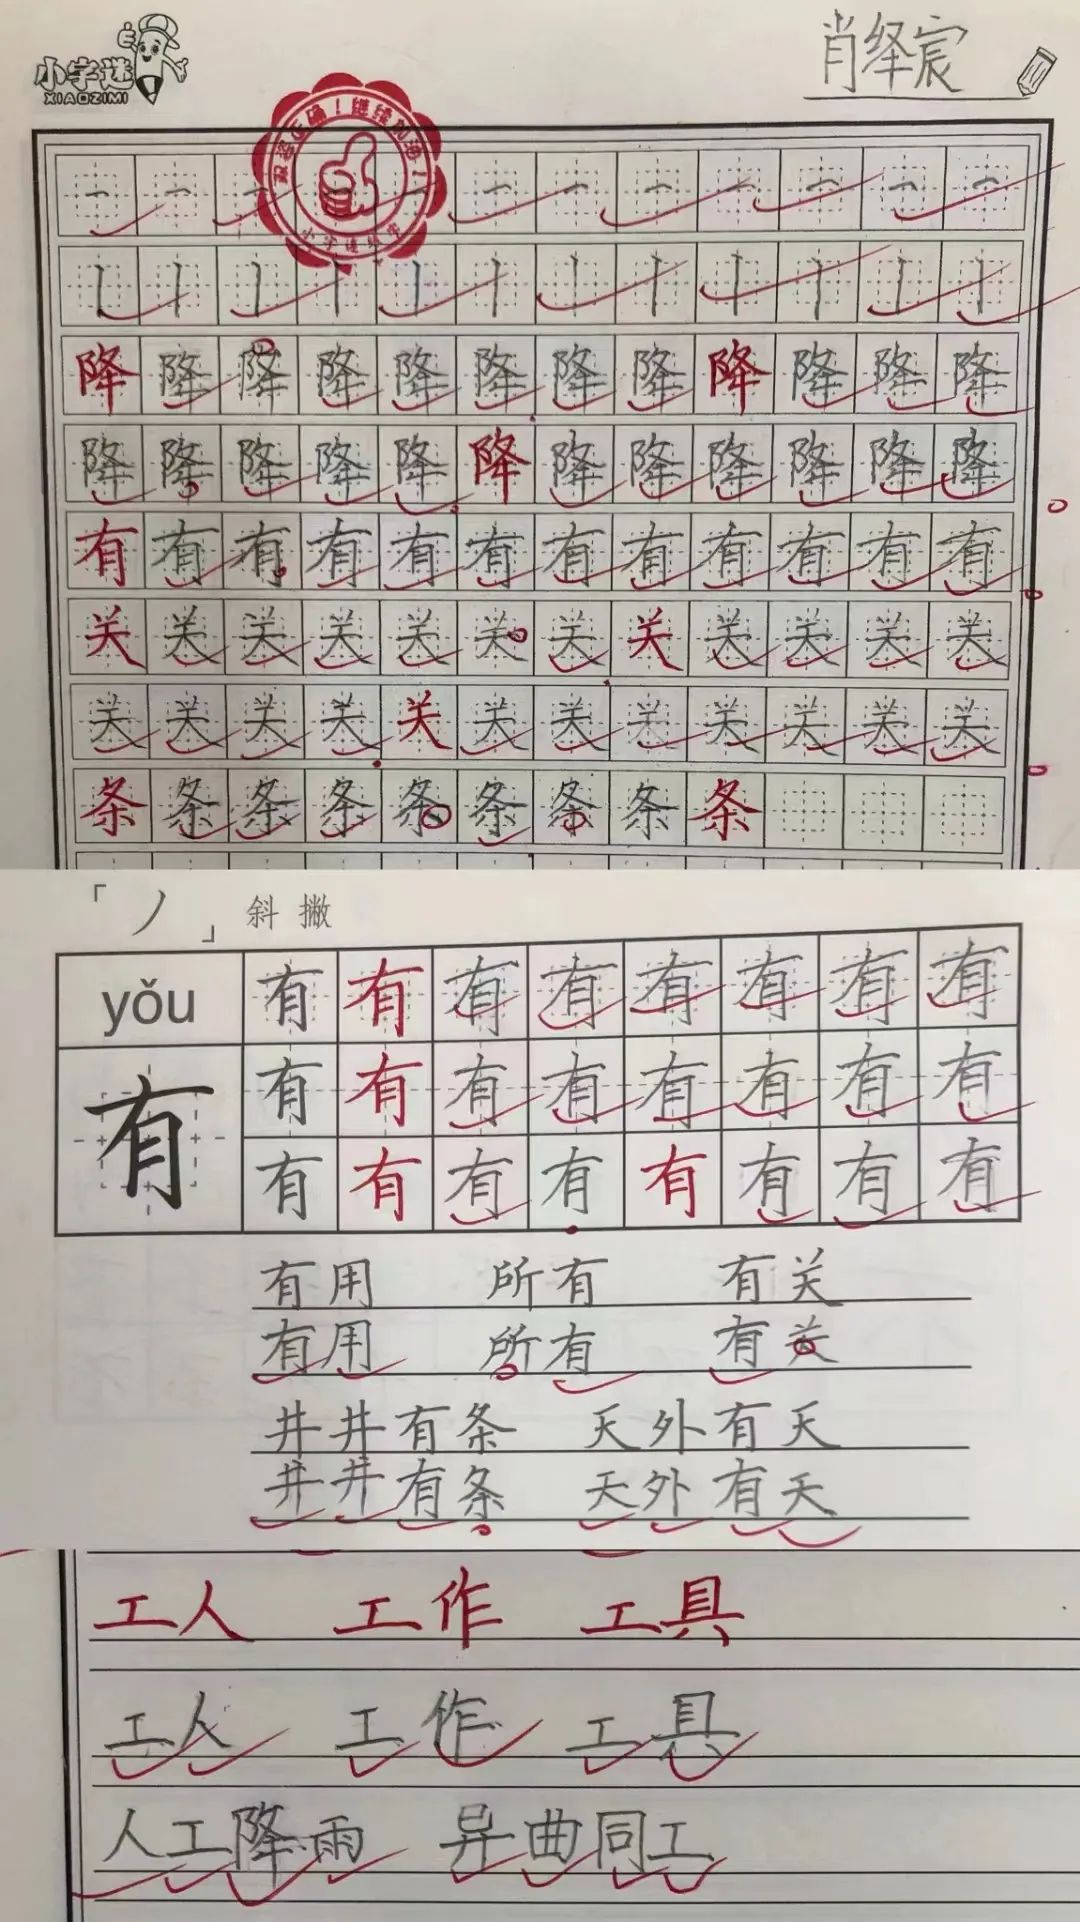 小字迷
XIAOZIMI
肖绎宸
双姿正确！继续加油！
小字迷练字
一 一 一 一 一 一 一 一 一 一 一 一
丨 丨 丨 丨 丨 丨 丨 丨 丨 丨 丨 丨
降 降 降 降 降 降 降 降 降 降 降 降
降 降 降 降 降 降 降 降 降 降 降 降
有 有 有 有 有 有 有 有 有 有 有 有
关 关 关 关 关 关 关 关 关 关 关 关
关 关 关 关 关 关 关 关 关 关 关 关
条 条 条 条 条 条 条 条 条
「丿」斜撇
yǒu 有 有 有 有 有 有 有 有
有 有 有 有 有 有 有 有 有
有 有 有 有 有 有 有 有
有用 所有 有关
有用 所有 有关
井井有条 天外有天
井井有条 天外有天
工人 工作 工具
工人 工作 工具
人工降雨 异曲同工